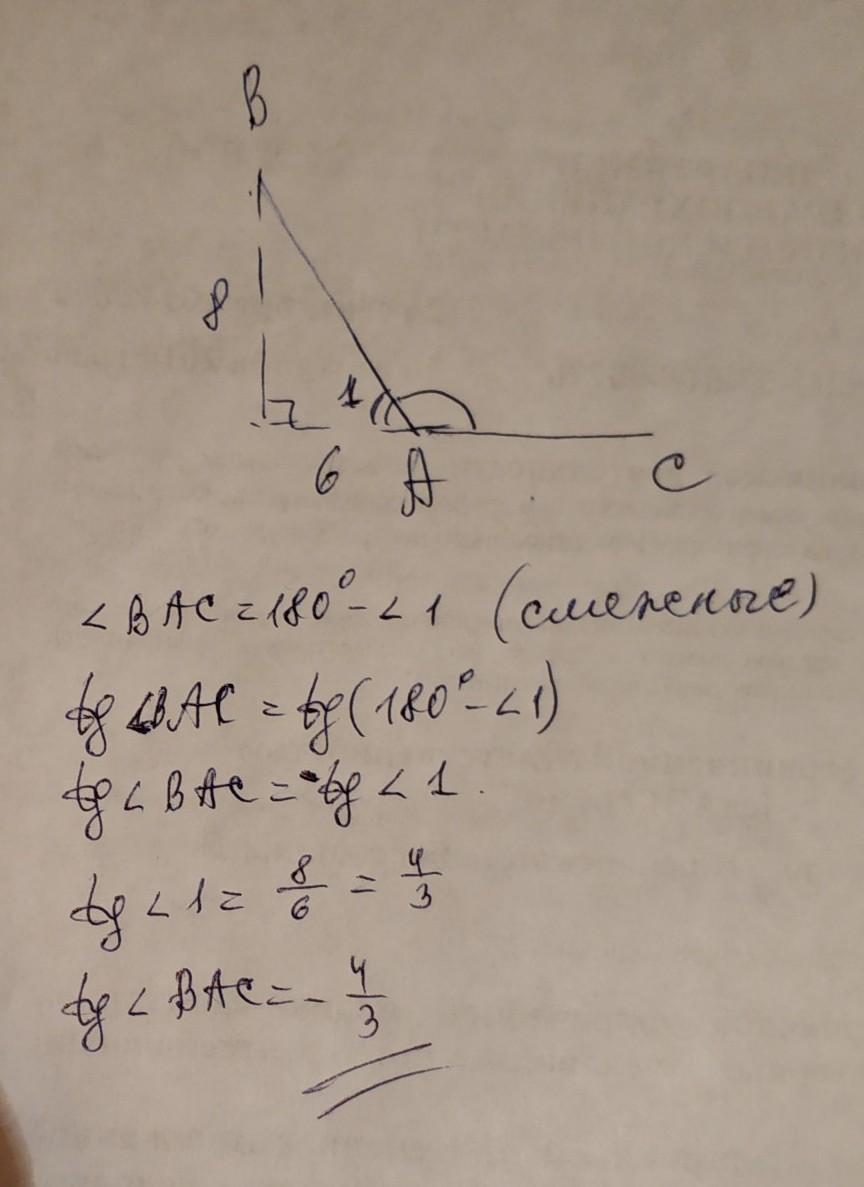 B
8
1
6 A C
∠BAC = 180° - ∠1 (смежные)
tg ∠BAC = tg(180° - ∠1)
tg ∠BAC = -tg ∠1.
tg ∠1 = 8/6 = 4/3
tg ∠BAC = - 4/3